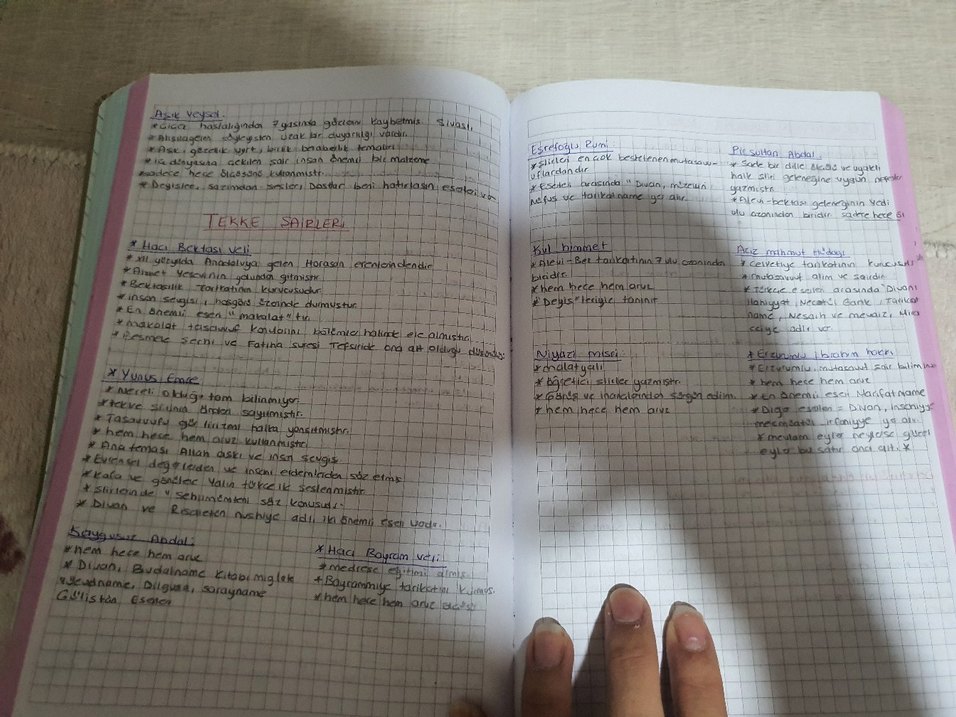 Aşık Veysel
* Çiçek hastalığından 7 yaşında gözlerini kaybetmiş. Sivaslı,
* Alışılagelen söyleyişten uzak bir duyarlılığı vardır.
* Aşk, gözellik, yurt, birlik beraberlik temaları
* iç dünyasına çekilen şair insan önemli bir malzeme
* sadece hece ölçüsünü kullanmıştır.
* Deyişler, sazımdan sesler, Dostlar beni hatırlasın, eserleri var
TEKKE ŞAİRLERİ
* Hacı Bektaşi veli
* XII yüzyılda Anadoluya gelen Horasan erenlerindendir
* Ahmet Yesevinin yolunda gitmiştir.
* Bektaşilik tarikatının kurucusudur
* insan sevgisi, hoşgörü üzerinde durmuştur
* En önemli eseri "makalat" tır.
* makalat tasavvuf konularını bölümler halinde ele almıştır
* Besmele şerhi ve Fatiha suresi Tefsiride ona ait olduğu
* Yunus Emre
* Nereli olduğu tam bilinmiyor.
* tekke şiirinin önderi sayılmıştır.
* Tasavvufu lirizmi halka yansıtmıştır.
* hem hece hem aruz kullanmıştır.
* Ana teması Allah aşkı ve insan sevgisi
* Evrensel değerlerden ve insani erdemlerden söz etmiş
* kafa ve gönüllere Yalın türkçe ile seslenmiştir.
* şiirlerinde "sehlimümteni söz konusudur.
* Divan ve Risaleten nushiye adlı iki önemli eseri vardır.
Kaygusuz Abdal
* hem hece hem aruz
* Divan, Budalname kitabı miglate
* Vücudname, Dilguşa, sarayname
Gülistan Eserleri
* Hacı Bayram veli
* medrese eğitimi almış
* Bayrammiye tarikatını kurmuş.
* hem hece hem aruz ölçüsü
Eşrefoğlu Rumi
* şiirleri en çok bestelenen mutasav-
vıflardandır
* Eserleri arasında "Divan, müzekin
Nefus ve tarikatname yer alır.
Pir Sultan Abdal
* Sade bir dille, ölçülü ve uyaklı
halk şiiri geleneğine uygun nefesler
yazmıştır
* Alevi-bektaşi geleneğinin yedi
ulu ozanından biridir. sadece hece öl
Kul himmet
* Alevi-Bek tarikatının 7 ulu ozanından
biridir.
* hem hece hem aruz.
* "Deyiş"leriyle tanınır
Aziz mahmut hüdayi
* Celvetiye tarikatının kurucusu
* mutasavvuf alim ve şairdir.
* Türkçe eserleri arasında "Divanı
ilahiyyat, Necatül Garik, Tarikat
name, Nesaih ve mevaiz, Mira
ciye adlı var
Niyazi mısri
* malatyalı
* öğretici şiirler yazmıştır.
* Görüş ve inançlarından sürgün edilm.
* hem hece hem aruz
* Erzurumlu ibrahim hakkı
* Erzurumlu, mutasavvuf şair bilim
* hem hece hem aruz
* En önemli eseri Marifatname
* Diğer eserleri = Divan, insaniyye
mecmuatül irfaniyye yer alır.
* mevlam eyler neylerse güzel
eyler bu satır ona ait. *